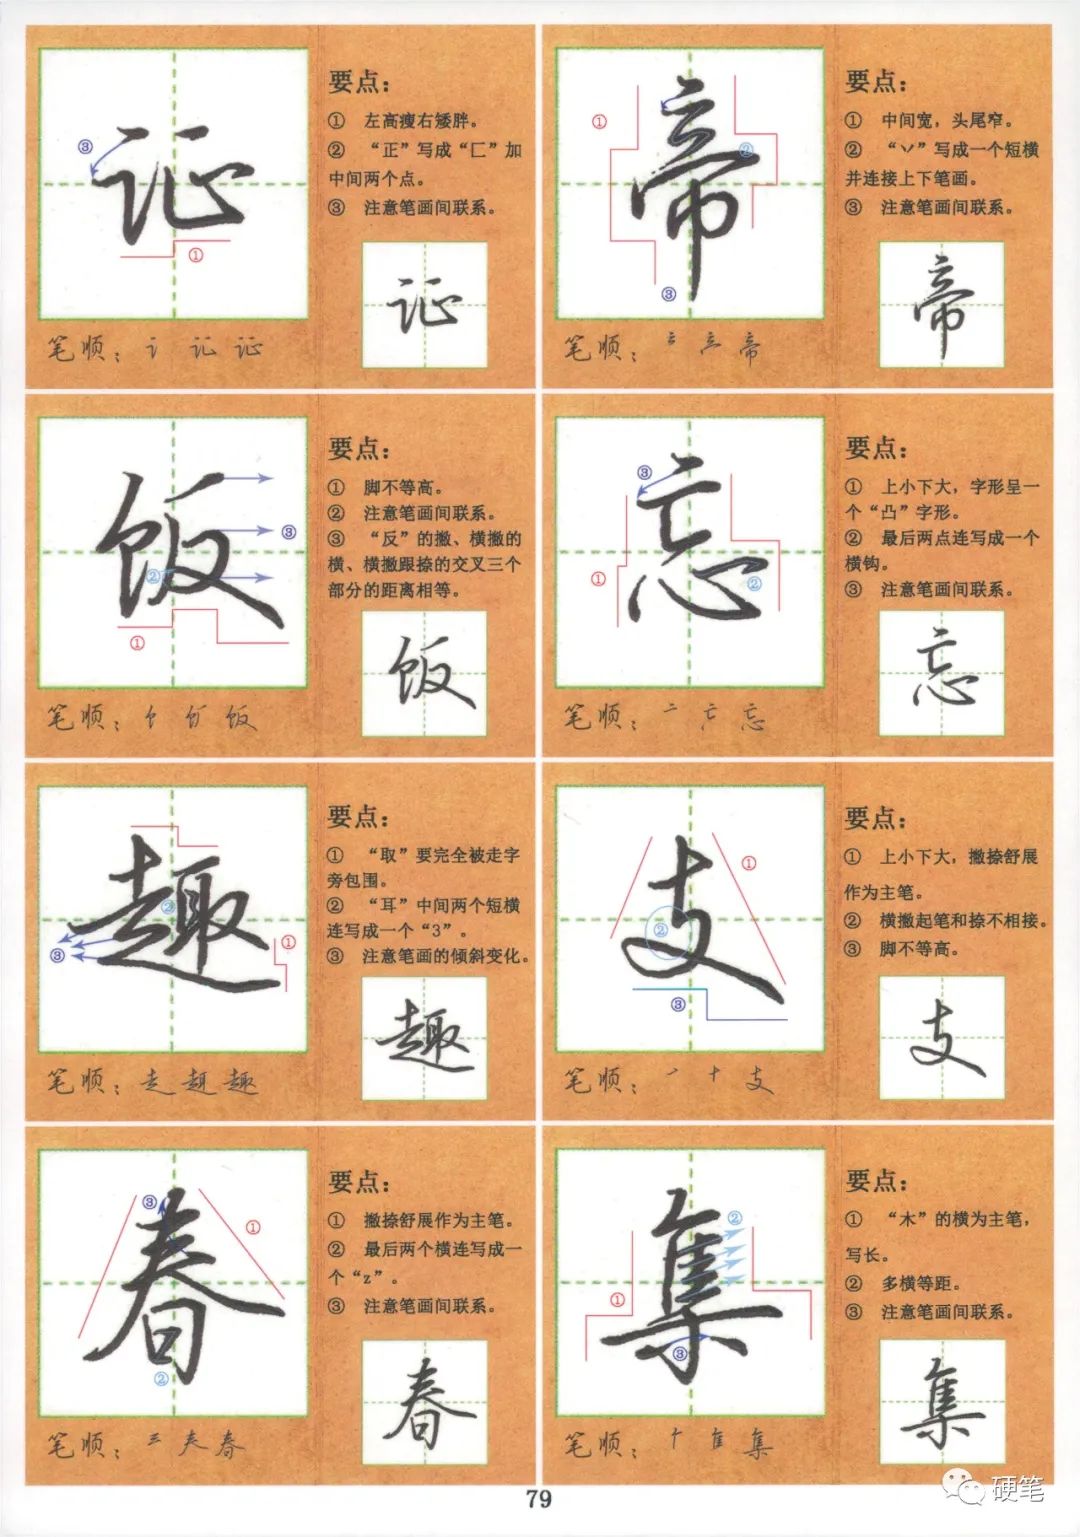 证
要点：
① 左高瘦右矮胖。
② “正”写成“匚”加
中间两个点。
③ 注意笔画间联系。
③
①
证
笔顺：讠 证 证
帝
要点：
① 中间宽，头尾窄。
② “丷”写成一个短横
并连接上下笔画。
③ 注意笔画间联系。
①
②
③
帝
笔顺： 帝
饭
要点：
① 脚不等高。
② 注意笔画间联系。
③ “反”的撇、横撇的
横、横撇跟捺的交叉三个
部分的距离相等。
③
②
①
饭
笔顺：饣 饭
忘
要点：
① 上小下大，字形呈一
个“凸”字形。
② 最后两点连写成一个
横钩。
③ 注意笔画间联系。
③
①
②
忘
笔顺：亠 亡 忘
趣
要点：
① “取”要完全被走字
旁包围。
② “耳”中间两个短横
连写成一个“3”。
③ 注意笔画的倾斜变化。
②
①
③
趣
笔顺：走 趣
支
要点：
① 上小下大，撇捺舒展
作为主笔。
② 横撇起笔和捺不相接。
③ 脚不等高。
①
②
③
支
笔顺：一 十 支
春
要点：
① 撇捺舒展作为主笔。
② 最后两个横连写成一
个“z”。
③ 注意笔画间联系。
③
①
②
春
笔顺：三 𡗗 春
集
要点：
① “木”的横为主笔，
写长。
② 多横等距。
③ 注意笔画间联系。
②
①
③
集
笔顺：亻 隹 集
79
硬笔